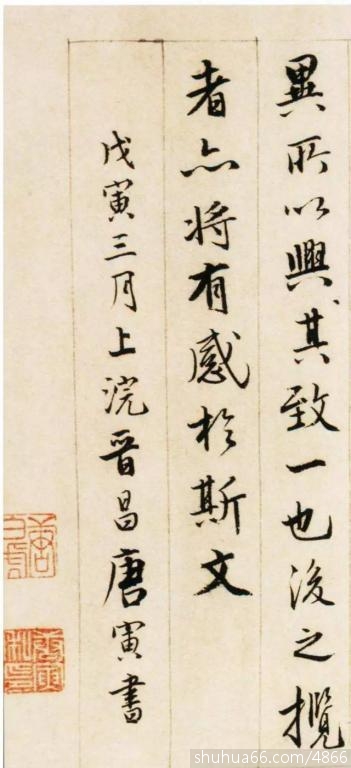 異所以興其致一也後之攬
者亦將有感於斯文
戊寅三月上浣晉昌唐寅書
shuhua66.com/4866